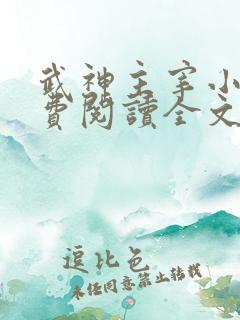 武神主宰小
費閱讀全文
逗比色
未经同意禁止转载